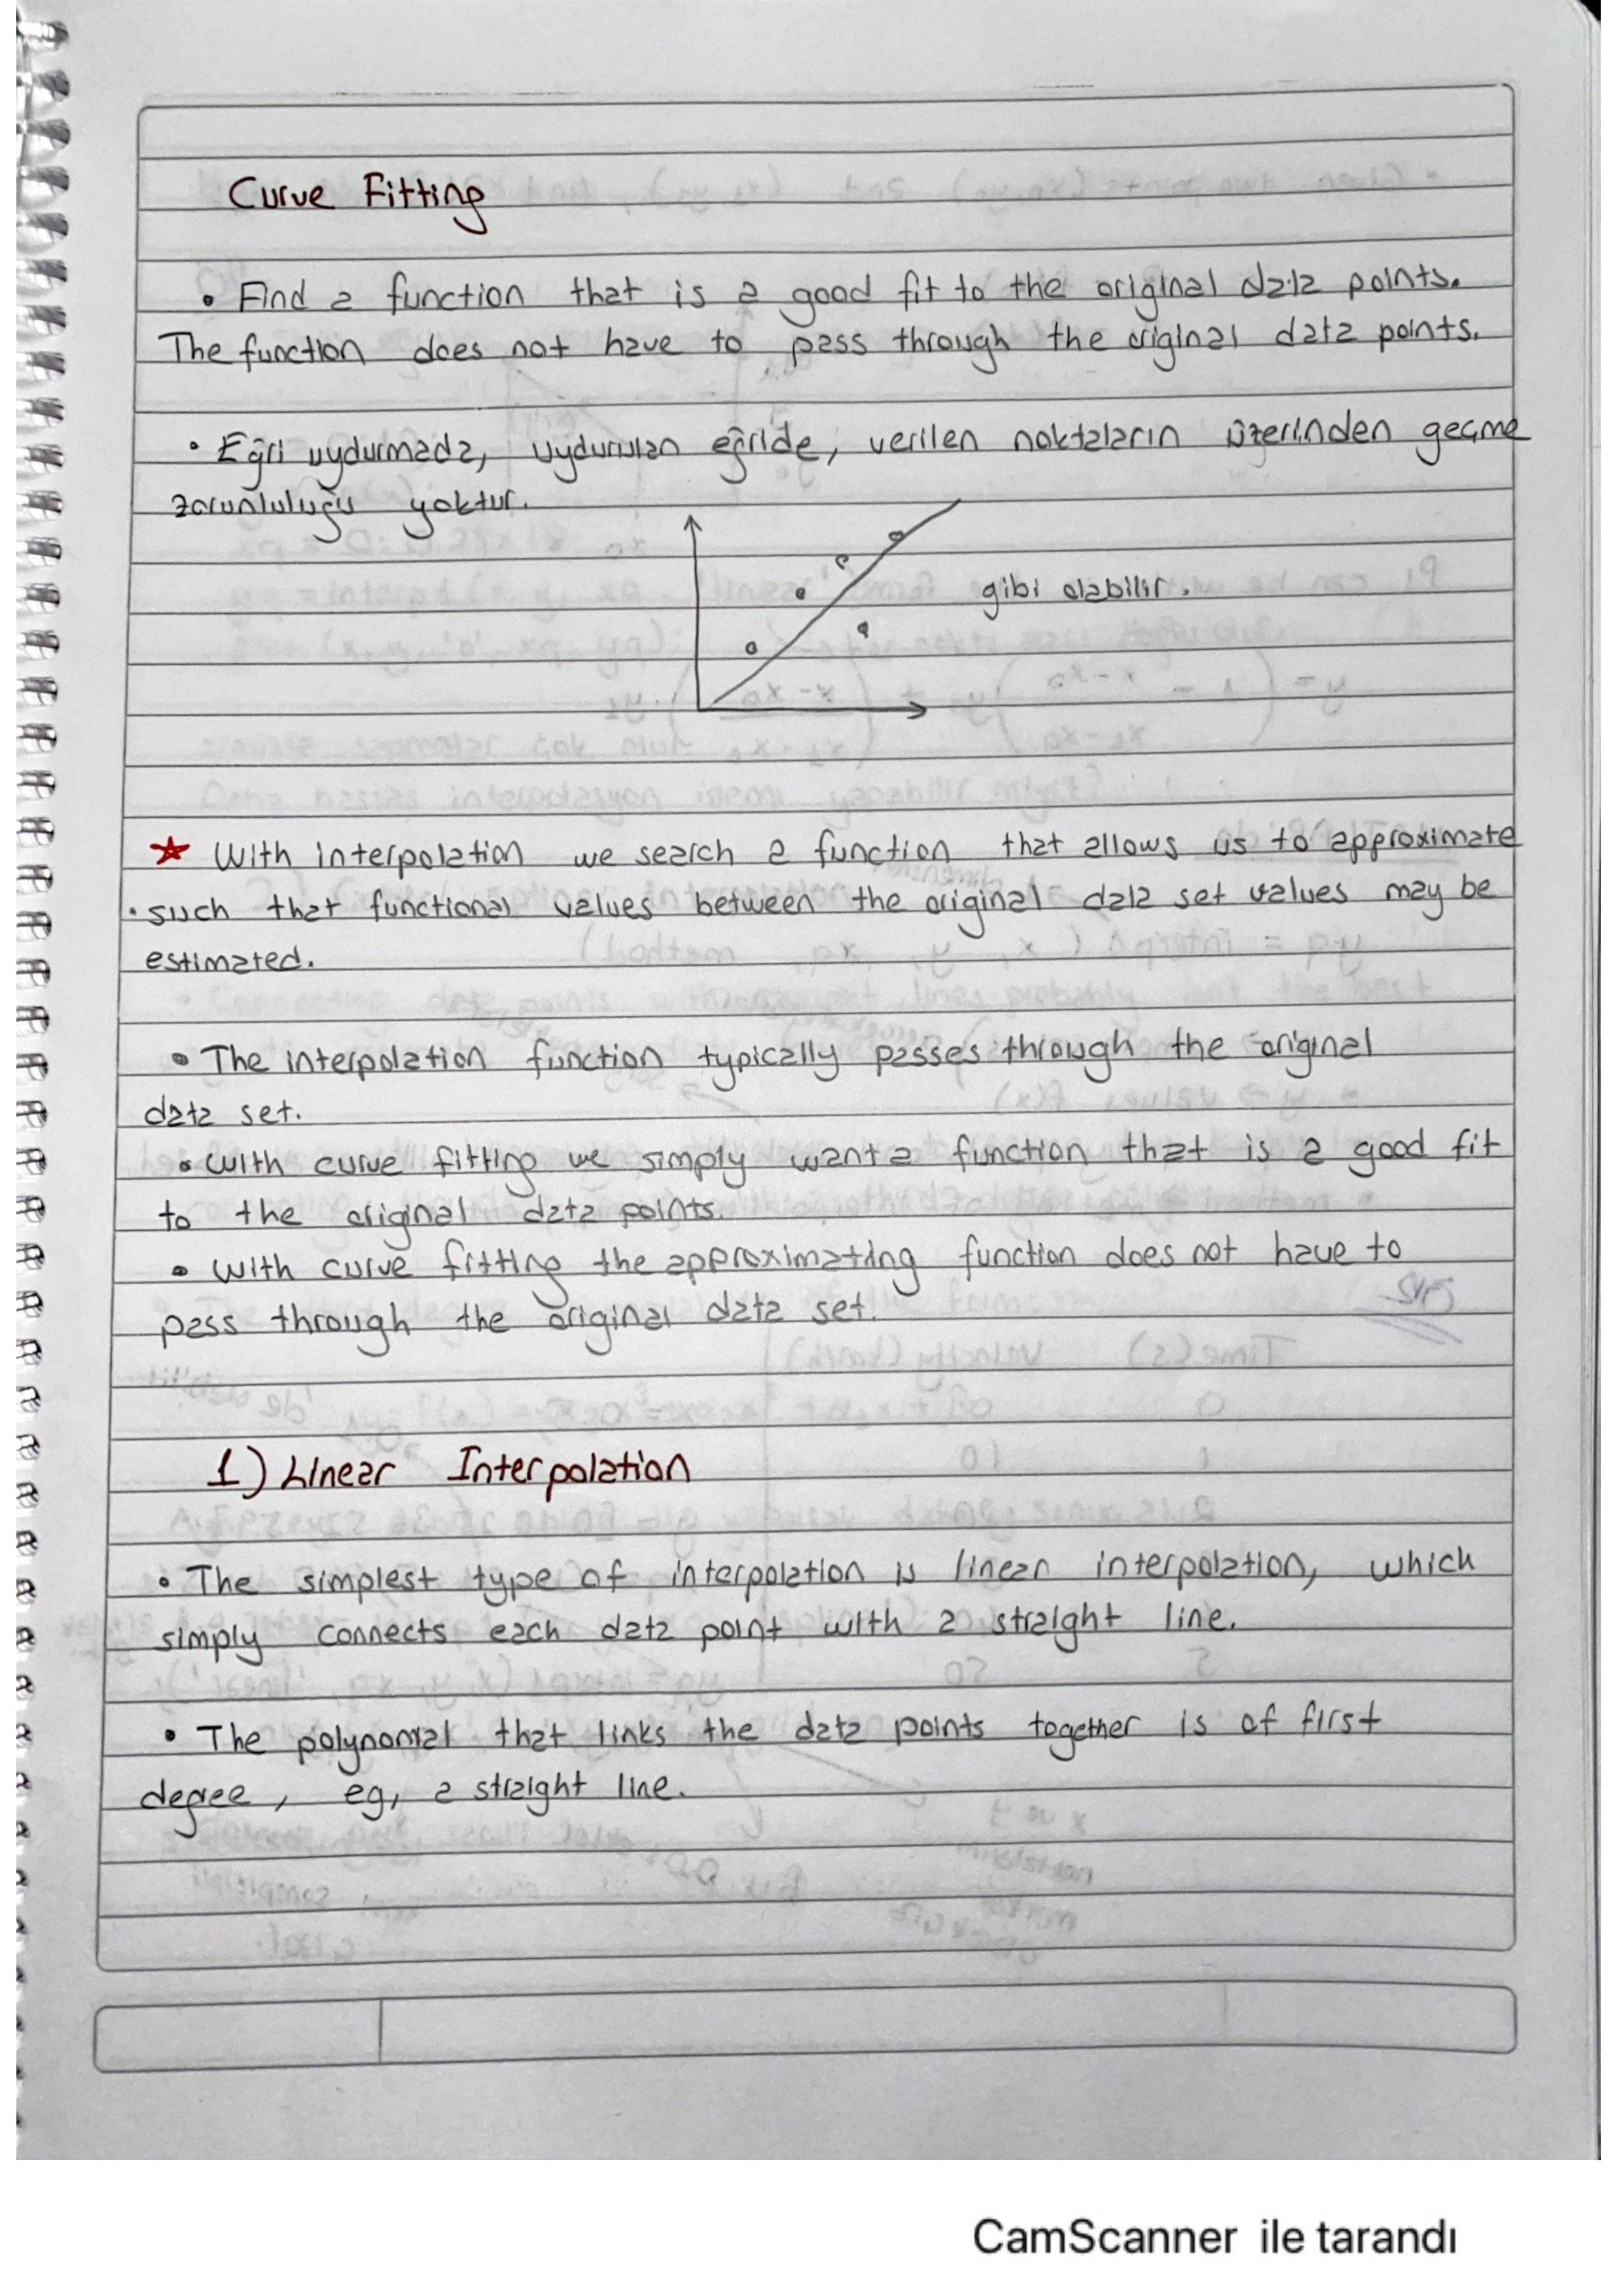 Curve Fitting
• Find a function that is a good fit to the original data points.
The function does not have to pass through the original data points.
• Eğri uydurmada, uydurulan eğride, verilen noktaların üzerinden geçme
zorunluluğu yoktur.
gibi olabilir.
★ With interpolation we search a function that allows us to approximate
• such that functional values between the original data set values may be
estimated.
• The interpolation function typically passes through the original
data set.
• With curve fitting we simply want a function that is a good fit
to the original data points.
• With curve fitting the approximating function does not have to
pass through the original data set.
1) Linear Interpolation
• The simplest type of interpolation is linear interpolation, which
simply connects each data point with a straight line.
• The polynomial that links the data points together is of first
degree, eg, a straight line.
CamScanner ile tarandı